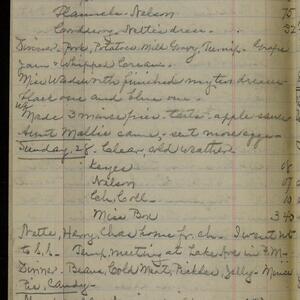 Flannels - Nelson 75
Laundering Nettie's dress - 32
Dinner - Pork, Potatoes, Milk Gravy, Turnip - Grape
Jam & Whipped Cream.
Miss Wadsworth finished my two dresses
black one and blue one.
Made 3 mince pies - tarts - apple sauce
Aunt Mollie came, - sent more eggs -
Sunday, 28. Clear, cold weather
Keyes 08
Nelson 07
Ch. Coll. 10
Miss Box 3 40
Nettie, Harry, Chas home fr. ch. - I went not
to S.S. Temp. meeting at Lake Ave in P.M.
Dinner - Beans, Cold Meat, Pickles, Jelly - Mince
Pie, Candy -